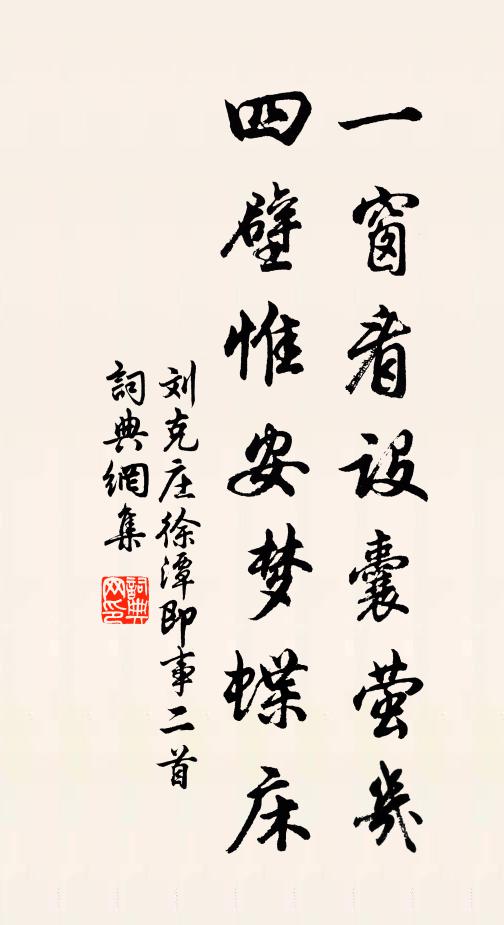 一窗者设囊萤几
四壁惟安梦蝶床
刘克庄徐潭即事二首
詞典網集
詞典网印